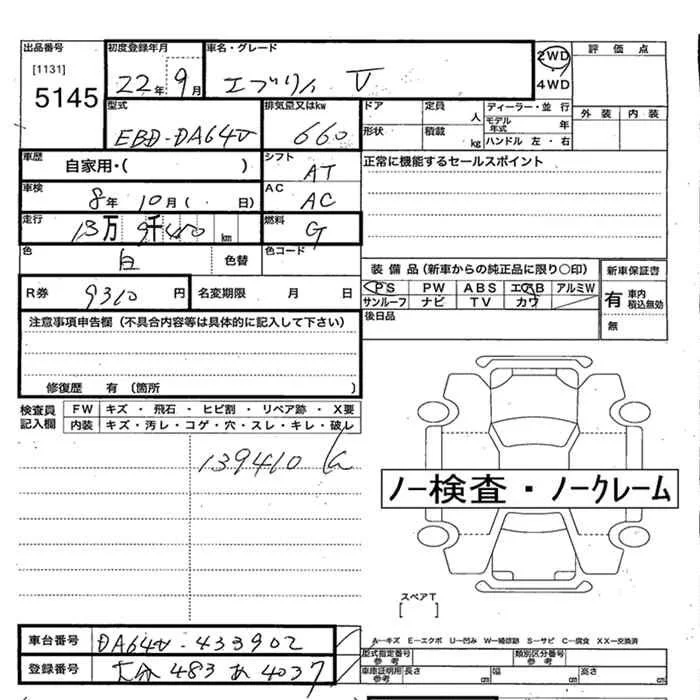 出品番号 初度登録年月 車名・グレード 2WD 評価点
[1131] 22年 9月 エブリィ V 4WD
5145 外装 内装
型式 排気量又はkw ドア 定員 人 ディーラー・並行
EBD-DA64V 660 モデル年式 年
形状 積載 kg ハンドル 左・右
車歴 自家用・( ) シフト AT 正常に機能するセールスポイント
車検 8年 10月 ( 日) AC AC
走行 13万 9千410 km 燃料 G
色 白 色替 色コード
装備品(新車からの純正品に限り○印) 新車保証書
R券 9310 円 名変期限 月 日 PS PW ABS エアB アルミW 有 車内積込無効
サンルーフ ナビ TV カワ 無
注意事項申告欄(不具合内容等は具体的に記入して下さい) 後日品
修復歴 有 (箇所 )
検査員記入欄 FW キズ・飛石・ヒビ割・リペア跡・X要
内装 キズ・汚レ・コゲ・穴・スレ・キレ・破レ
139410
ノー検査・ノークレーム
スペアT
[ ]
A-キズ E-エクボ U-凹み W-補修跡 S-サビ C-腐食 XX-交換済
車台番号 DA64V-433902 型式指定番号 参考 類別区分番号 参考
登録番号 大分 483 あ 4037 車庫証明用 参考 長さ cm 幅 cm 高さ cm